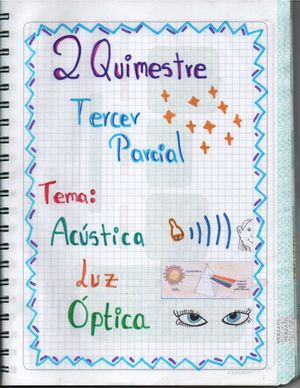 2 Quimestre
Tercer
Parcial
Tema:
Acústica
Luz
Óptica